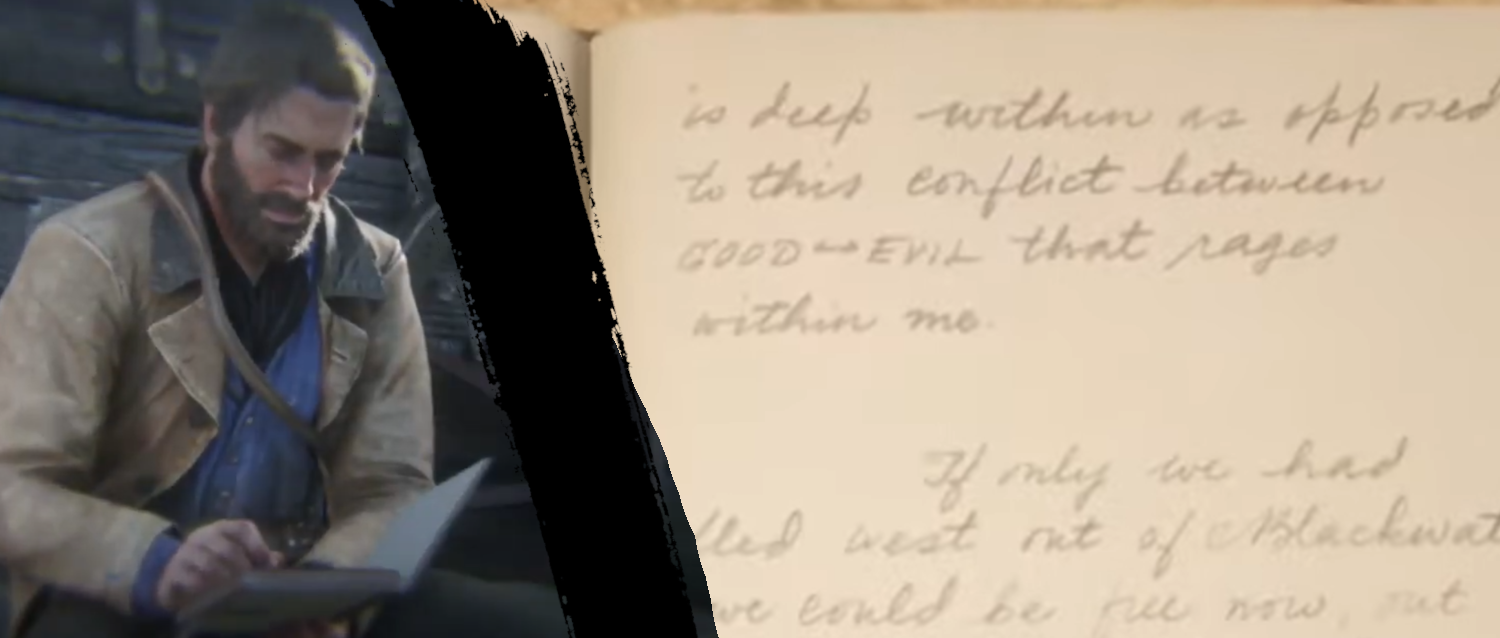 is deep within as opposed
to this conflict between
GOOD ↔ EVIL that rages
within me.
If only we had
west out of
we could be free now,